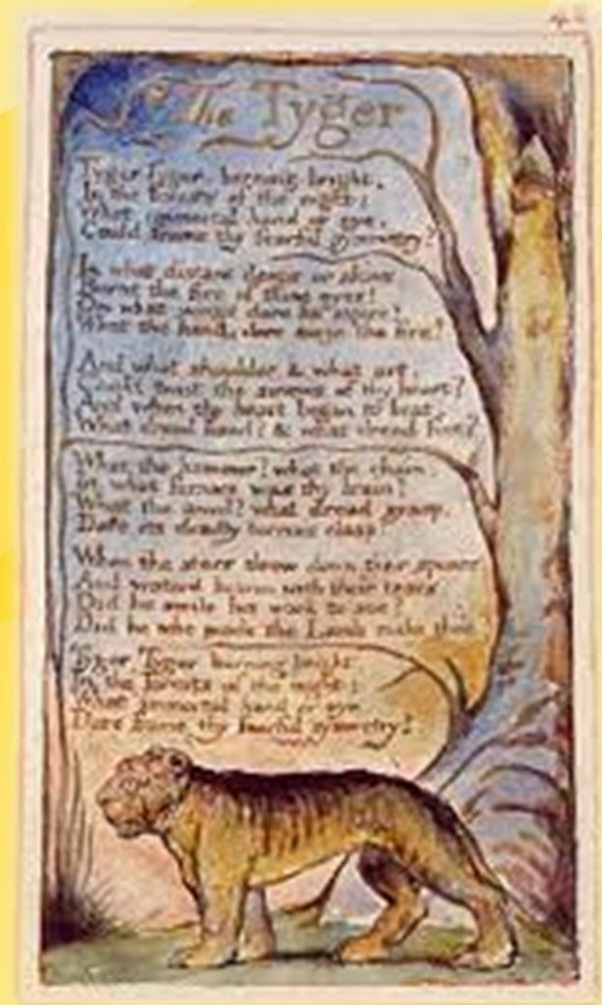 The Tyger
Tyger Tyger, burning bright,
In the forests of the night;
What immortal hand or eye,
Could frame thy fearful symmetry?
In what distant deeps or skies
Burnt the fire of thine eyes?
On what wings dare he aspire?
What the hand, dare seize the fire?
And what shoulder, & what art,
Could twist the sinews of thy heart?
And when thy heart began to beat,
What dread hand? & what dread feet?
What the hammer? what the chain,
In what furnace was thy brain?
What the anvil? what dread grasp,
Dare its deadly terrors clasp!
When the stars threw down their spears
And water'd heaven with their tears:
Did he smile his work to see?
Did he who made the Lamb make thee?
Tyger Tyger burning bright,
In the forests of the night:
What immortal hand or eye,
Dare frame thy fearful symmetry?